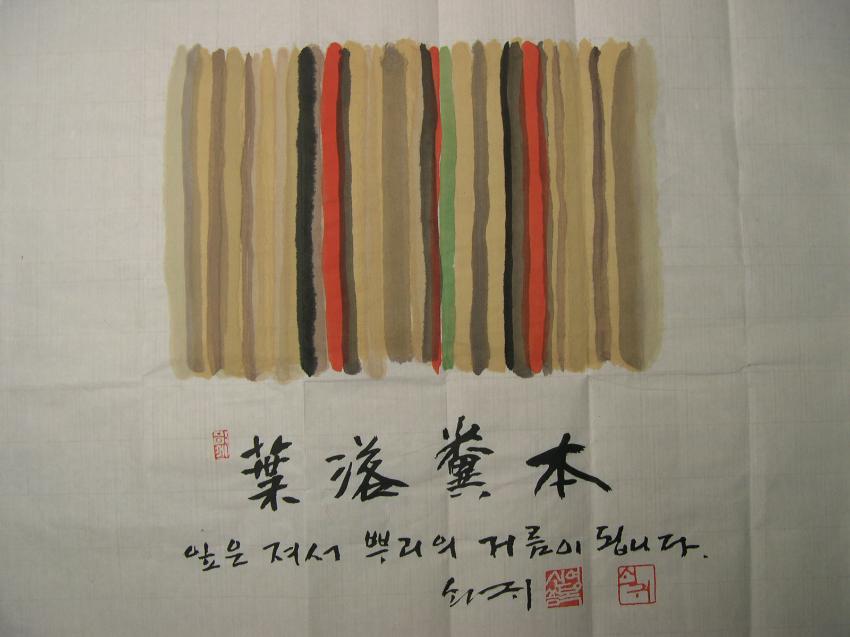 葉落糞本
잎은 져서 뿌리의 거름이 됩니다.
쇠귀